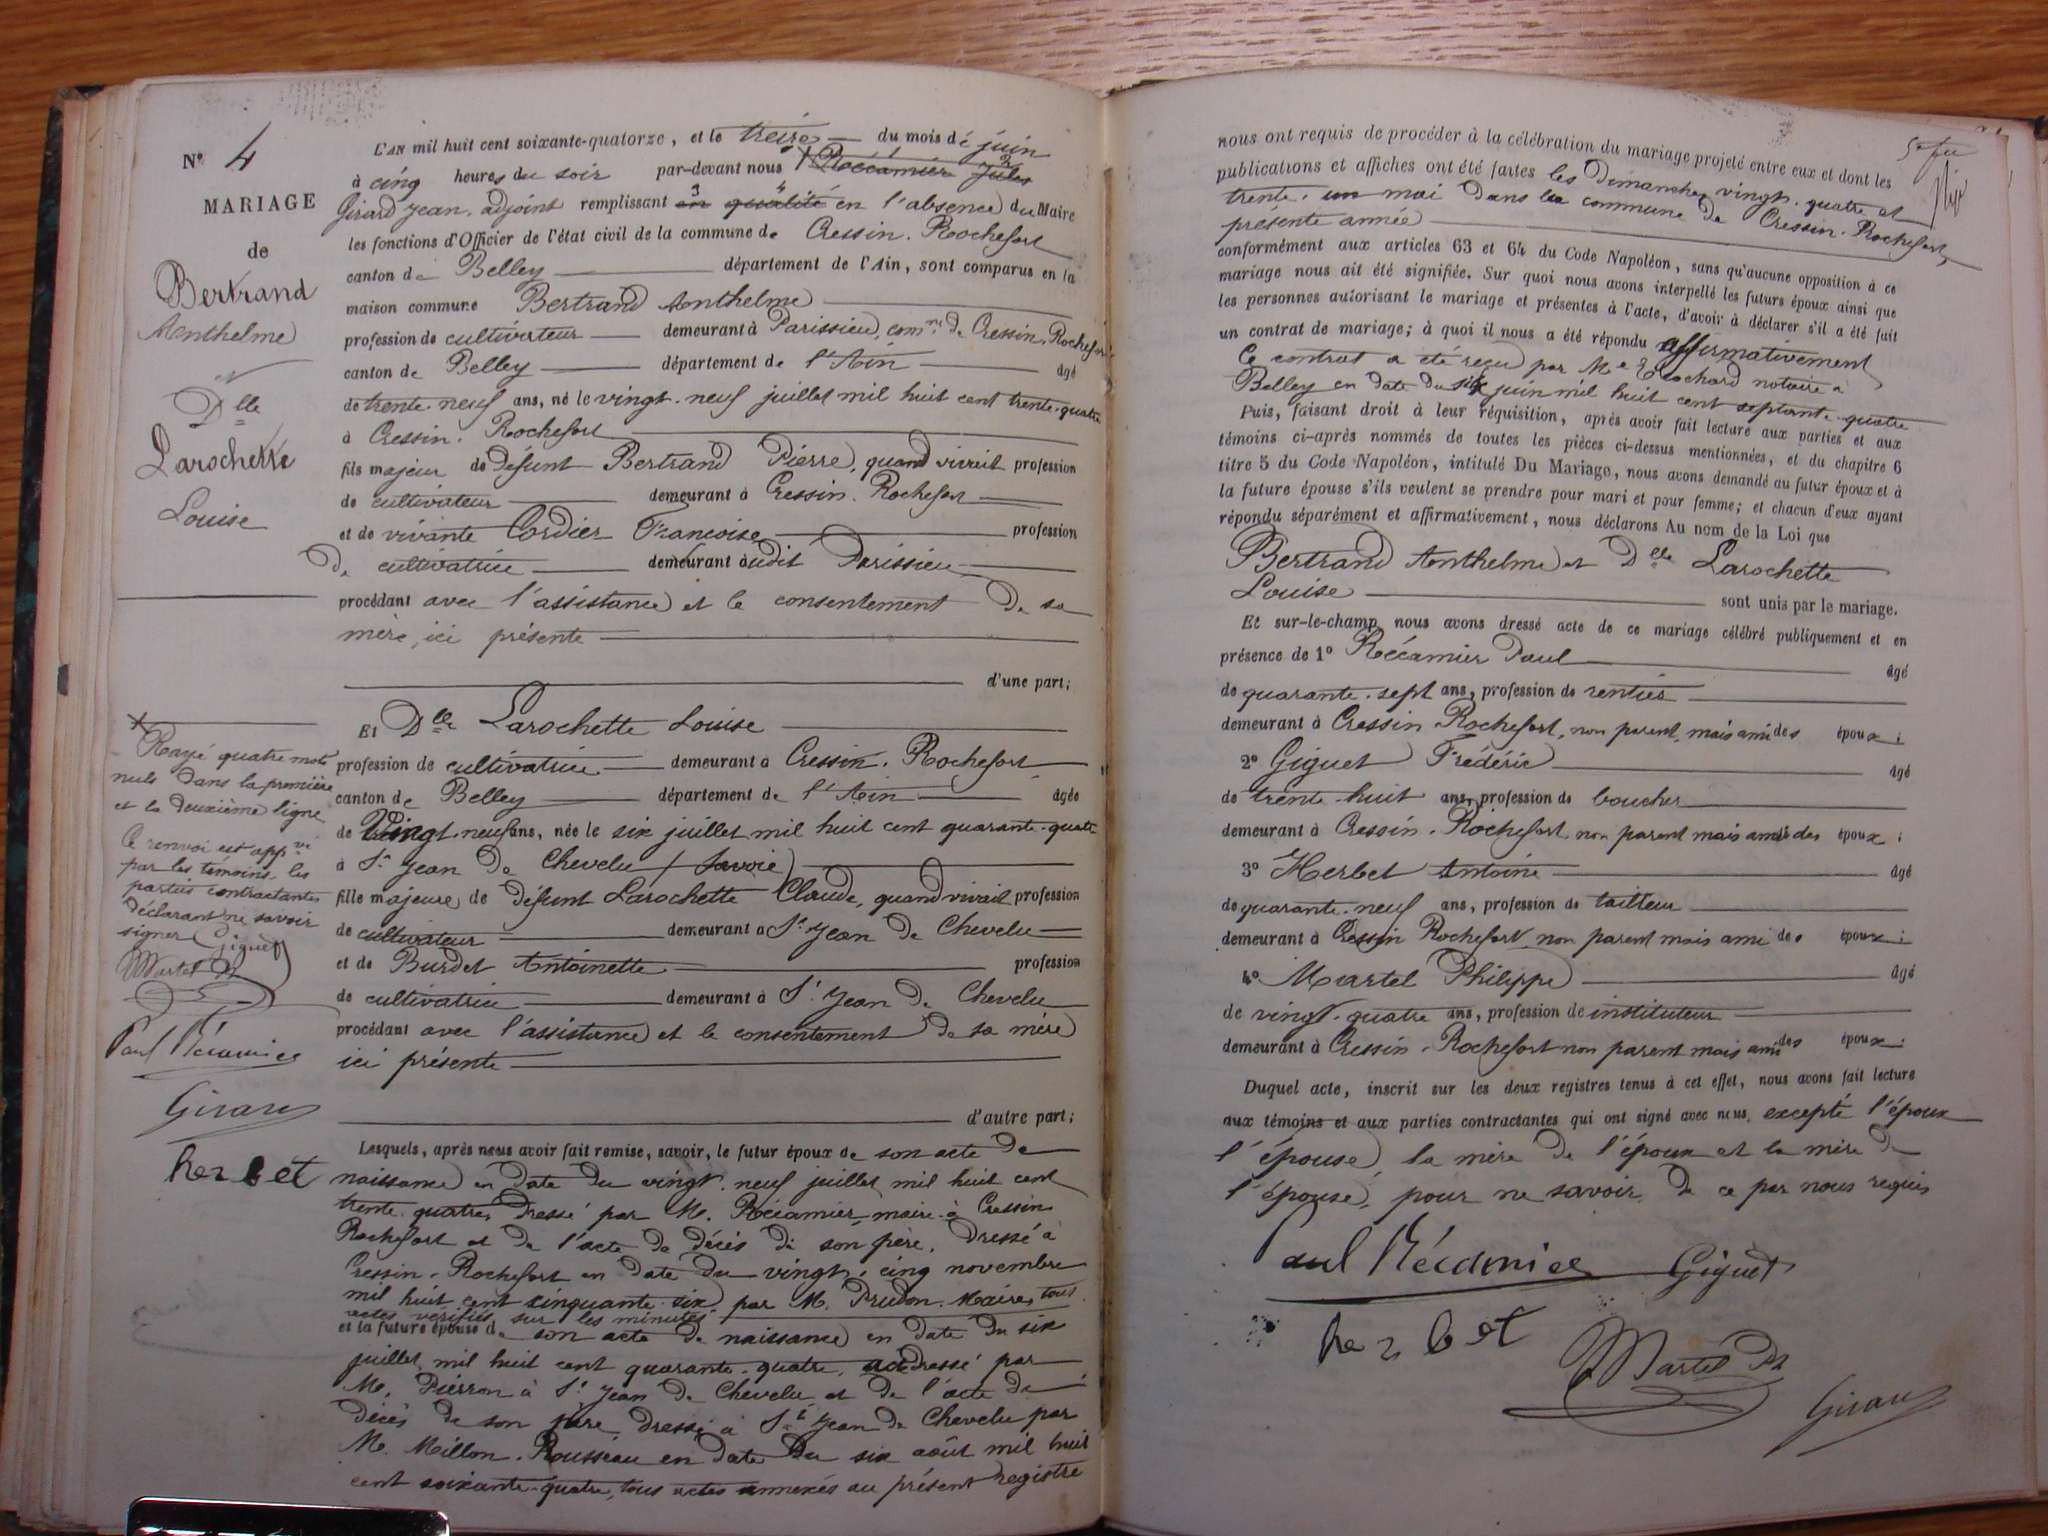 N° 4
MARIAGE
de
Bertrand
Anthelme
et
Dlle
Larochette
Louise
L'AN mil huit cent soixante-quatorze, et le treize du mois de juin
à cinq heures du soir par-devant nous Récamier Jules
Girard Jean, adjoint remplissant en qualité en l'absence du Maire
les fonctions d'Officier de l'état civil de la commune de Cressin-Rochefort
canton de Belley département de l'Ain, sont comparus en la
maison commune Bertrand Anthelme
profession de cultivateur demeurant à Parissieu, comne de Cressin-Rochefort
canton de Belley département de l'Ain âgé
de trente-neuf ans, né le vingt-neuf juillet mil huit cent trente-quatre
à Cressin-Rochefort
fils majeur de défunt Bertrand Pierre, quand vivait profession
de cultivateur demeurant à Cressin-Rochefort
et de vivante Cordier Françoise profession
de cultivatrice demeurant audit Parissieu
procédant avec l'assistance et le consentement de sa
mère, ici présente
d'une part;
Et Dlle Larochette Louise
profession de cultivatrice demeurant à Cressin-Rochefort
canton de Belley département de l'Ain âgée
de vingt-neuf ans, née le six juillet mil huit cent quarante-quatre
à St Jean de Chevelu (Savoie)
fille majeure de défunt Larochette Claude, quand vivait profession
de cultivateur demeurant à St Jean de Chevelu
et de Burdet Antoinette profession
de cultivatrice demeurant à St Jean de Chevelu
procédant avec l'assistance et le consentement de sa mère
ici présente
d'autre part;
Lesquels, après nous avoir fait remise, savoir, le futur époux de son acte de
naissance en date du vingt-neuf juillet mil huit cent
trente-quatre, dressé par M. Récamier, maire à Cressin
Rochefort et de l'acte de décès de son père, dressé à
Cressin-Rochefort en date du vingt-cinq novembre
mil huit cent cinquante-six par M. Prudon, Maire, tous
actes vérifiés sur les minutes
et la future épouse de son acte de naissance en date du six
juillet mil huit cent quarante-quatre, dressé par
M. Pierron à St Jean de Chevelu et de l'acte de
décès de son père dressé à St Jean de Chevelu par
M. Millon-Rousseau en date du six août mil huit
cent soixante-quatre, tous actes annexés au présent registre
Rayé quatre mots
nuls dans la première
et la deuxième ligne
Ce renvoi est appvé
par les témoins, les
parties contractantes
déclarant ne savoir
signer Giguet
Martel Ph
Paul Récamier
Girard
herbet
nous ont requis de procéder à la célébration du mariage projeté entre eux et dont les
publications et affiches ont été faites les dimanches vingt-quatre et
trente-un mai dans la commune de Cressin-Rochefort,
présente année
conformément aux articles 63 et 64 du Code Napoléon, sans qu'aucune opposition à ce
mariage nous ait été signifiée. Sur quoi nous avons interpellé les futurs époux ainsi que
les personnes autorisant le mariage et présentes à l'acte, d'avoir à déclarer s'il a été fait
un contrat de mariage; à quoi il nous a été répondu affirmativement
Ce contrat a été reçu par Me notaire à
Belley en date du six juin mil huit cent septante-quatre
Puis, faisant droit à leur réquisition, après avoir fait lecture aux parties et aux
témoins ci-après nommés de toutes les pièces ci-dessus mentionnées, et du chapitre 6
titre 5 du Code Napoléon, intitulé Du Mariage, nous avons demandé au futur époux et à
la future épouse s'ils veulent se prendre pour mari et pour femme; et chacun d'eux ayant
répondu séparément et affirmativement, nous déclarons Au nom de la Loi que
Bertrand Anthelme et Dlle Larochette
Louise sont unis par le mariage.
Et sur-le-champ nous avons dressé acte de ce mariage célébré publiquement et en
présence de 1° Récamier Paul âgé
de quarante-sept ans, profession de rentier
demeurant à Cressin-Rochefort, non parent, mais ami des époux;
2° Giguet Frédéric âgé
de trente-huit ans, profession de boucher
demeurant à Cressin-Rochefort, non parent mais ami des époux;
3° Herbet Antoine âgé
de quarante-neuf ans, profession de tailleur
demeurant à Cressin Rochefort, non parent mais ami des époux;
4° Martel Philippe âgé
de vingt-quatre ans, profession de instituteur
demeurant à Cressin-Rochefort non parent mais ami des époux.
Duquel acte, inscrit sur les deux registres tenus à cet effet, nous avons fait lecture
aux témoins et aux parties contractantes qui ont signé avec nous, excepté l'époux
l'épouse, la mère de l'époux et la mère de
l'épouse, pour ne savoir, de ce par nous requis
Paul Récamier Giguet
herbet
Martel Ph
Girard